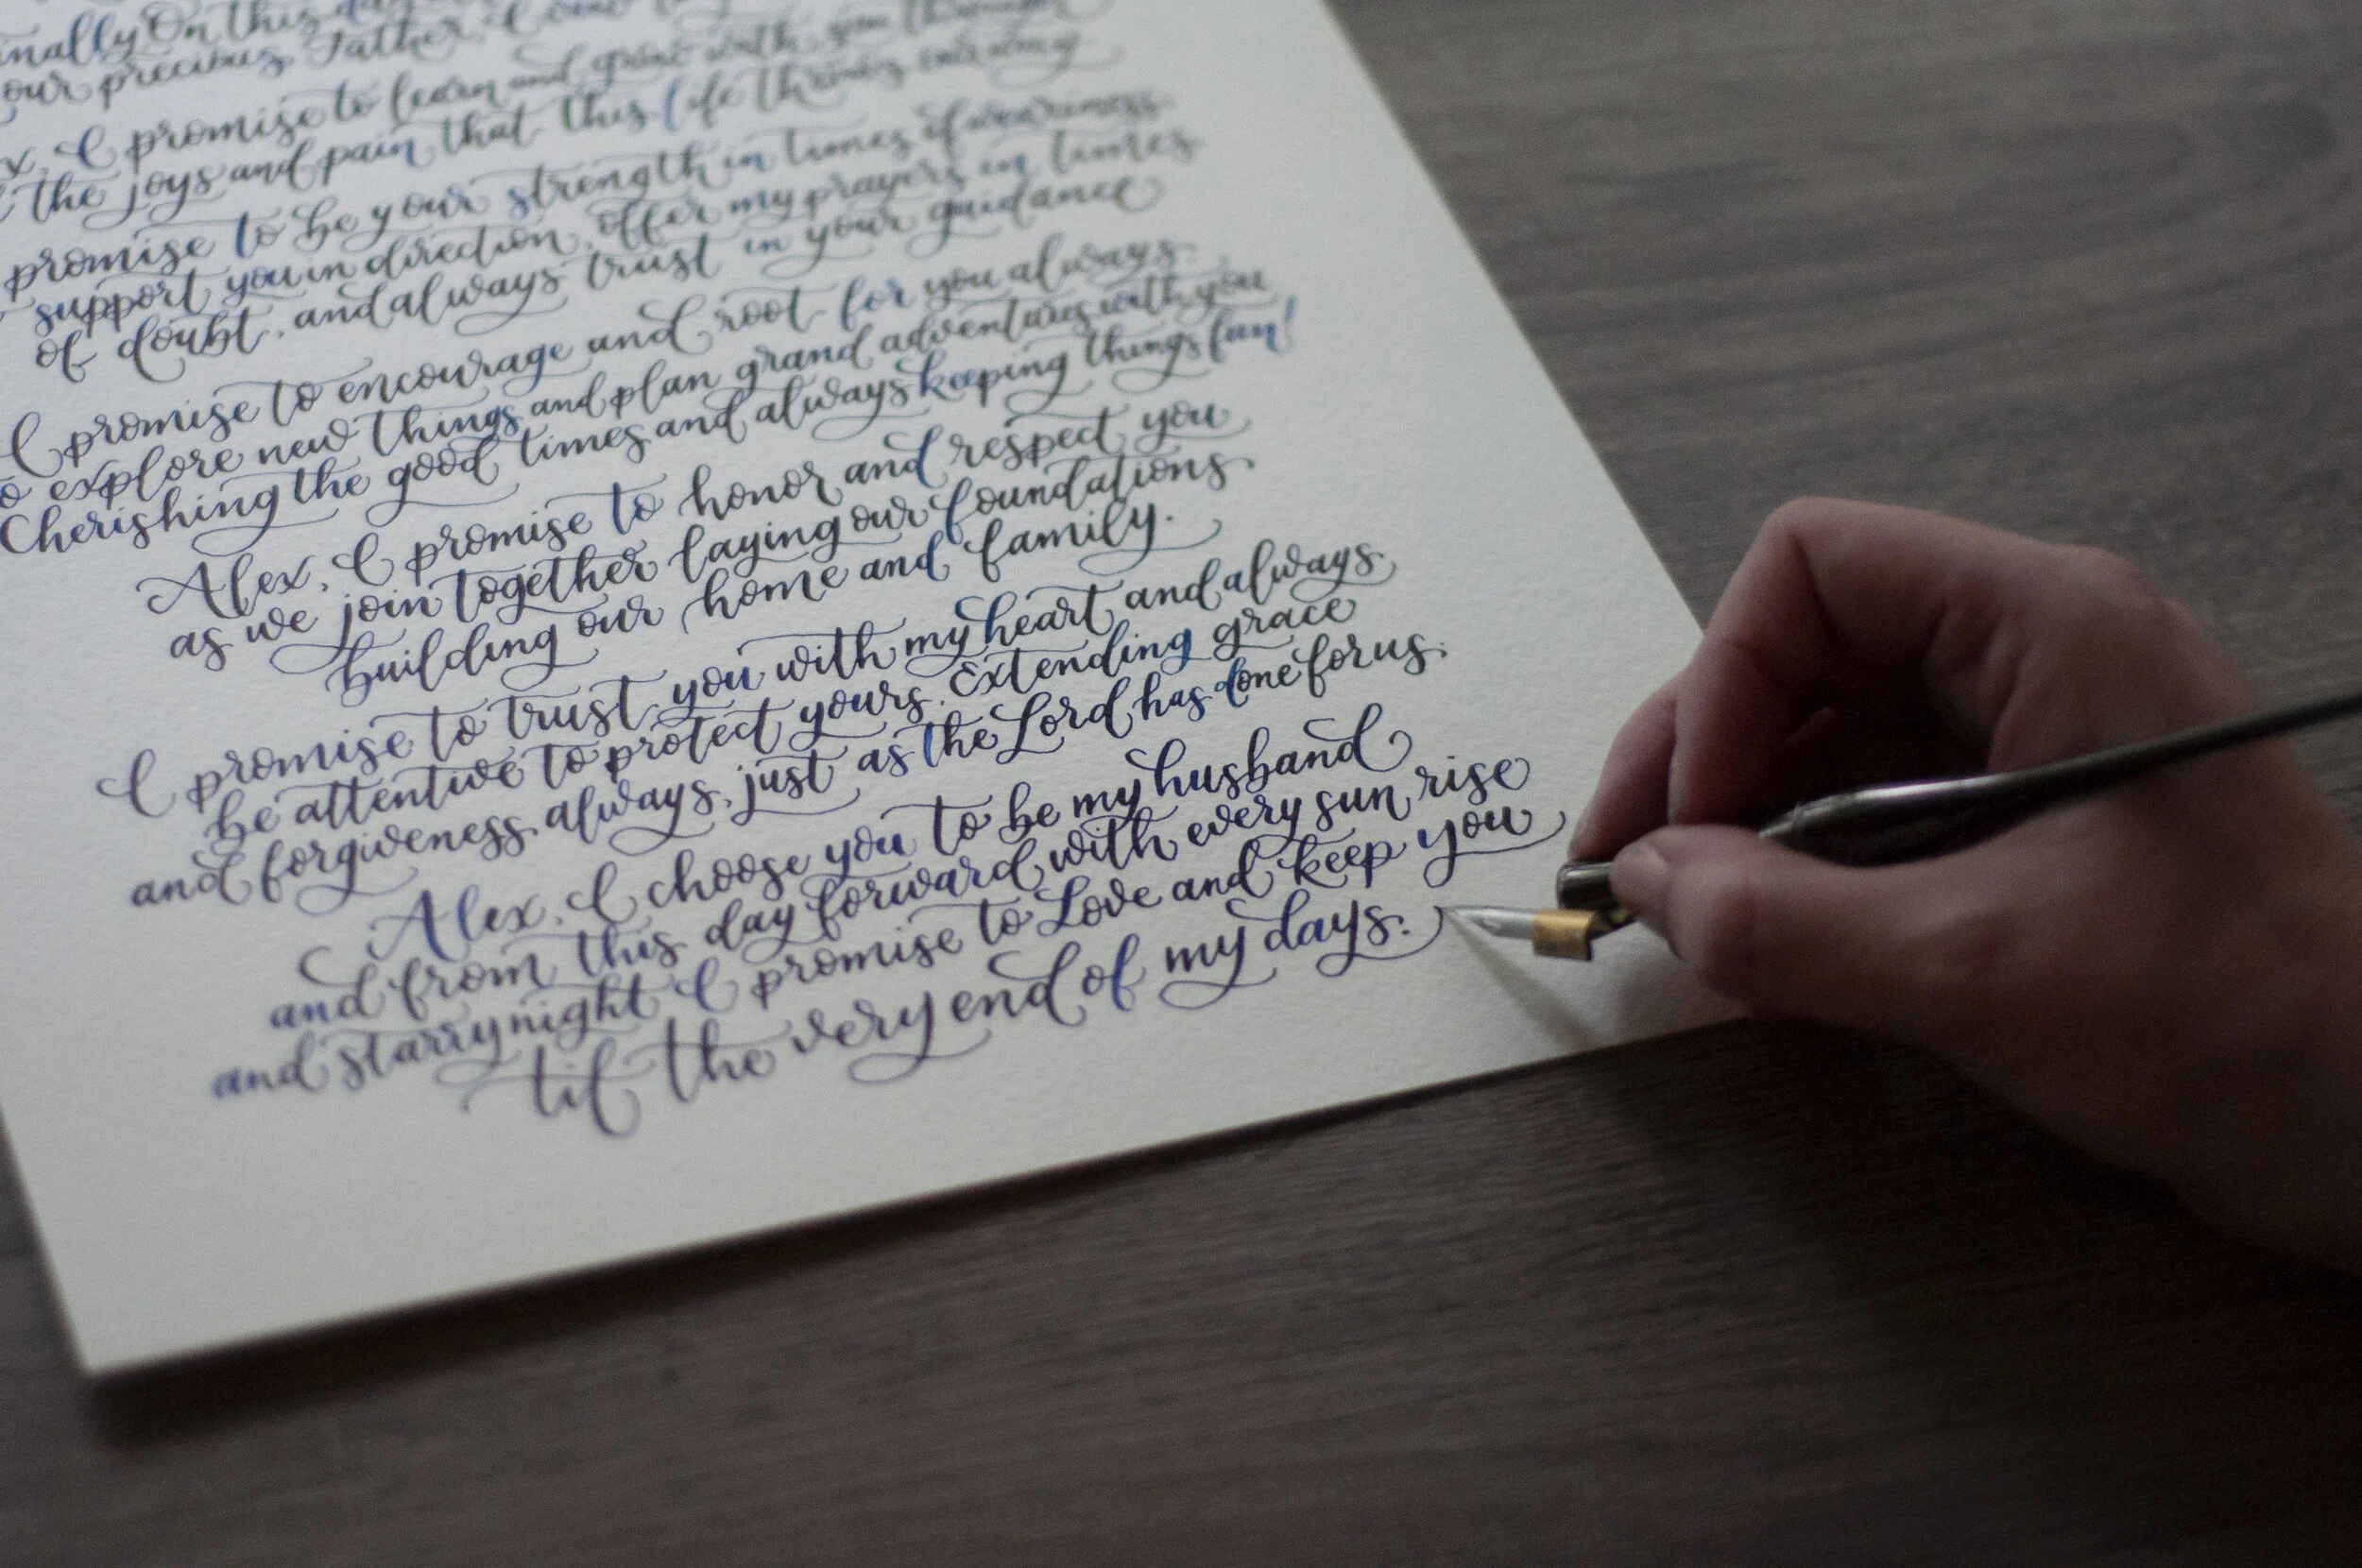 nally On this day
our precious Father, I
x, I promise to learn and grow with you through
the joys and pain that this life throws our way
promise to be your strength in times of weariness
support you in direction, offer my prayers in times
of doubt, and always trust in your guidance
I promise to encourage and root for you always.
to explore new things and plan grand adventures with you
Cherishing the good times and always keeping things fun!
Alex, I promise to honor and respect you
as we join together laying our foundations
building our home and family.
I promise to trust you with my heart and always
be attentive to protect yours. Extending grace
and forgiveness always, just as the Lord has done for us.
Alex, I choose you to be my husband
and from this day forward with every sun rise
and starry night I promise to Love and keep you
til the very end of my days.